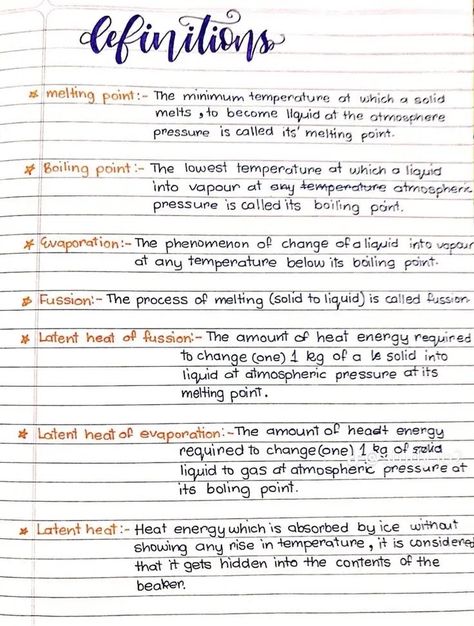 definitions
☆ melting point:- The minimum temperature at which a solid
melts, to become liquid at the atmosphere
pressure is called its' melting point.
☆ Boiling point:- The lowest temperature at which a liquid
into vapour at any temperature atmospheric
pressure is called its boiling point.
☆ Evaporation:- The phenomenon of change of a liquid into vapour
at any temperature below its boiling point.
☆ Fussion:- The process of melting (solid to liquid) is called fussion.
☆ Latent heat of fussion:- The amount of heat energy required
to change (one) 1 kg of a solid into
liquid at atmospheric pressure at its
melting point.
☆ Latent heat of evaporation:- The amount of heat energy
required to change (one) 1 kg of
liquid to gas at atmospheric pressure at
its boling point.
☆ Latent heat:- Heat energy which is absorbed by ice without
showing any rise in temperature, it is considered
that it gets hidden into the contents of the
beaker.